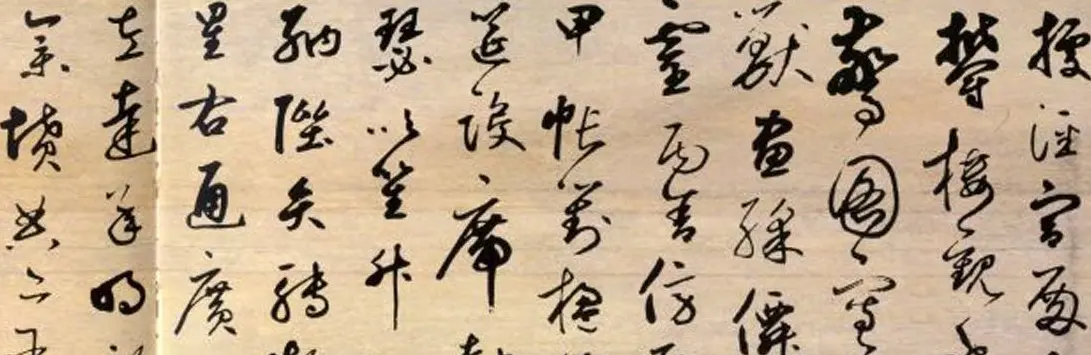 據涇宮殿
鬱樓觀飛
驚圖寫
獸畫綵僊
靈丙舍傍
甲帳對楹
筵設席
瑟吹笙升
納陛弁轉
星右通廣
左達承明
集墳典亦